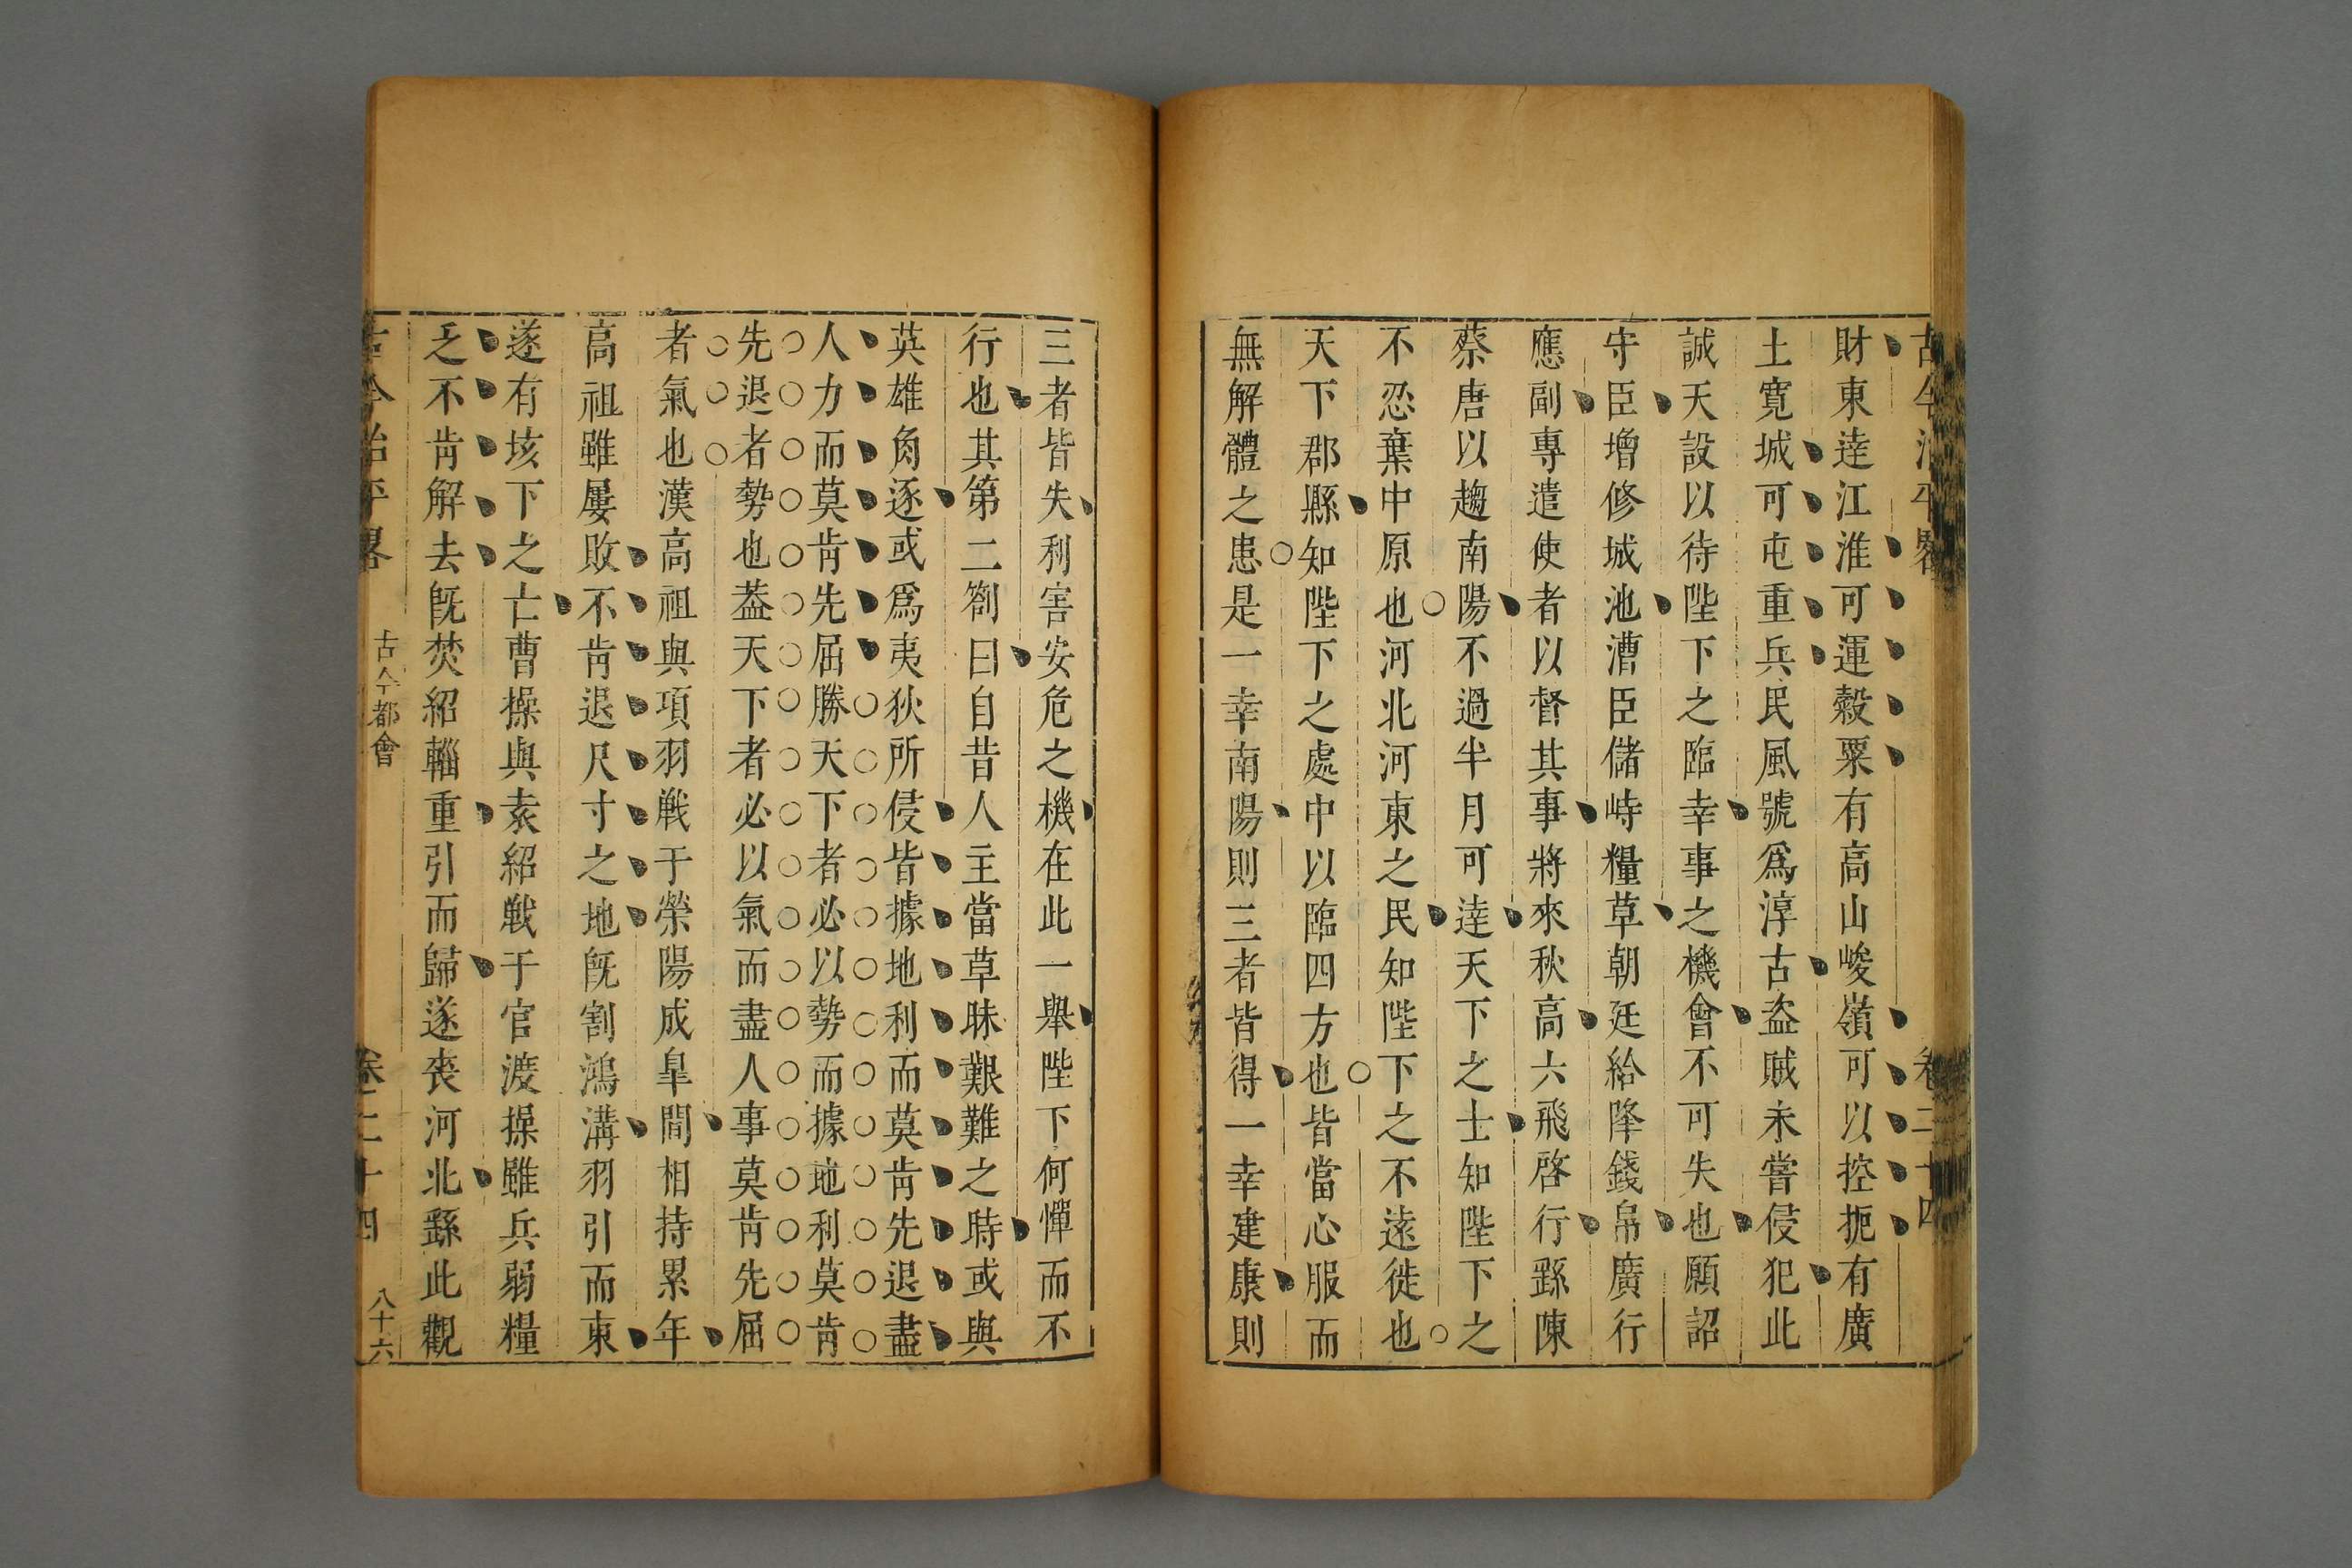 古今治平畧 卷二十四
財東逹江淮可運榖粟有高山峻嶺可以控扼有廣
土寛城可屯重兵民風號爲淳古盗賊未嘗侵犯此
誠天設以待陛下之臨幸事之機會不可失也願詔
守臣增修城池漕臣儲峙糧草朝廷給降錢帛廣行
應副專遣使者以督其事將來秋高六飛啓行繇陳
蔡唐以趨南陽不過半月可逹天下之士知陛下之
不忍棄中原也河北河東之民知陛下之不遠徙也
天下郡縣知陛下之處中以臨四方也皆當心服而
無解體之患是一幸南陽則三者皆得一幸建康則
三者皆失利害安危之機在此一舉陛下何憚而不
行也其第二劄曰自昔人主當草昧艱難之時或與
英雄角逐或爲夷狄所侵皆據地利而莫肯先退盡
人力而莫肯先屈勝天下者必以勢而據地利莫肯
先退者勢也葢天下者必以氣而盡人事莫肯先屈
者氣也漢高祖與項羽戰于滎陽成臯間相持累年
高祖雖屢敗不肯退尺寸之地旣割鴻溝羽引而東
遂有垓下之亡曹操與袁紹戰于官渡操雖兵弱糧
乏不肯解去旣焚紹輜重引而歸遂喪河北繇此觀
古今治平畧 古今都會 卷二十四 八十六